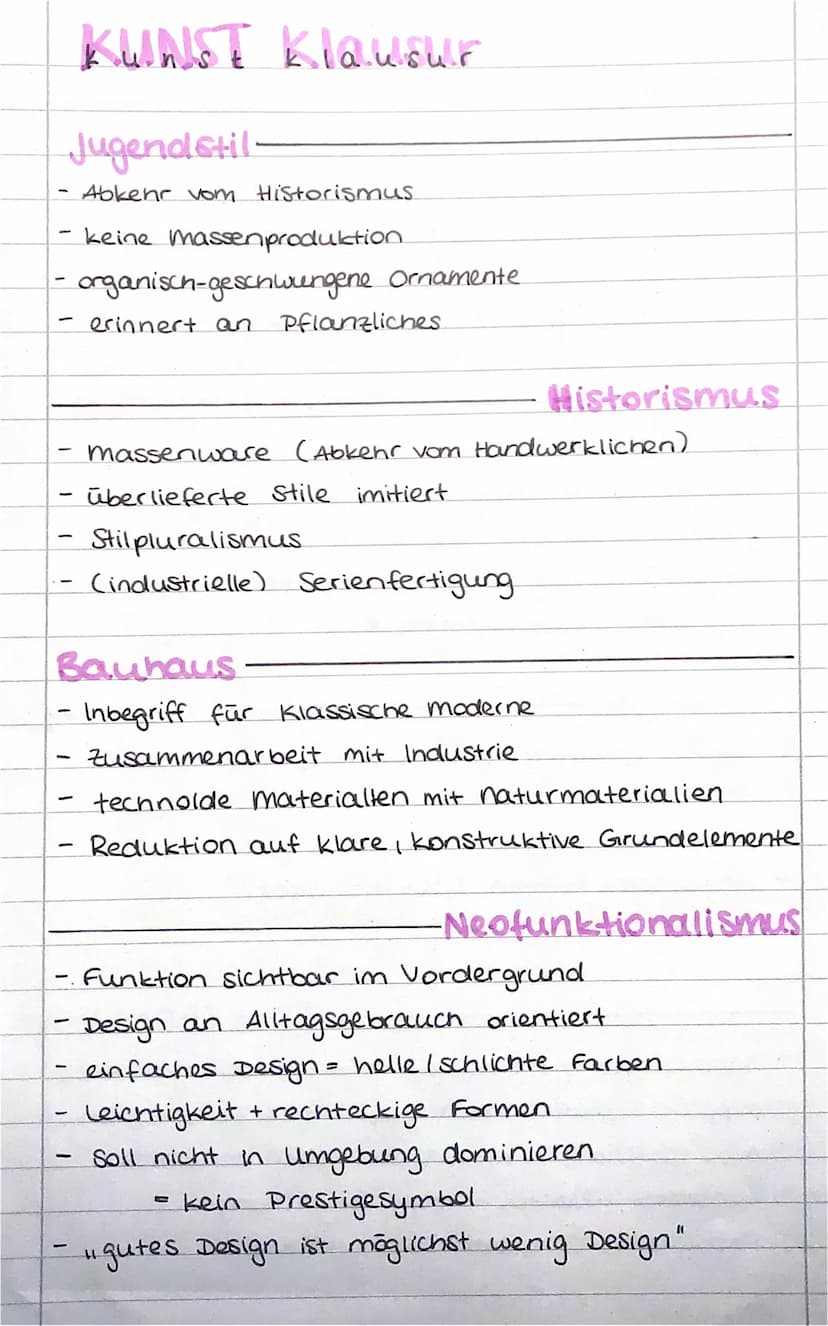 KUNST Klausur
Jugendstil
- Abkehr vom Historismus
- keine Massenproduktion
- organisch-geschwungene Ornamente
- erinnert an Pflanzliches
Historismus
- Massenware (Abkehr vom Handwerklichen)
- überlieferte Stile imitiert
- Stilpluralismus
- (industrielle) Serienfertigung
Bauhaus
- Inbegriff für Klassische Moderne
- Zusammenarbeit mit Industrie
- technolde Materialien mit Naturmaterialien
- Reduktion auf klare, konstruktive Grundelemente
Neofunktionalismus
- Funktion sichtbar im Vordergrund
- Design an Alltagsgebrauch orientiert
- einfaches Design = helle/schlichte Farben
- Leichtigkeit + rechteckige Formen
- soll nicht in Umgebung dominieren
= kein Prestigesymbol
- „gutes Design ist möglichst wenig Design"